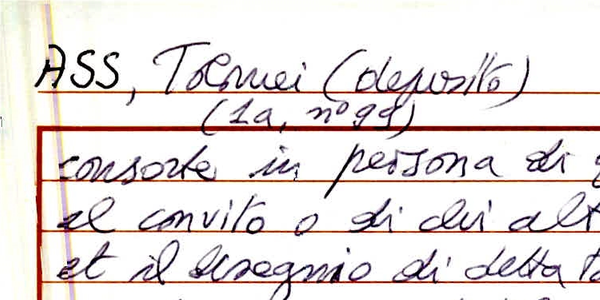 ASS, Tolomei (deposito)
(1a, n° 99)
consorte in persona di
al convito o di chi alt
et il disegnio di detta